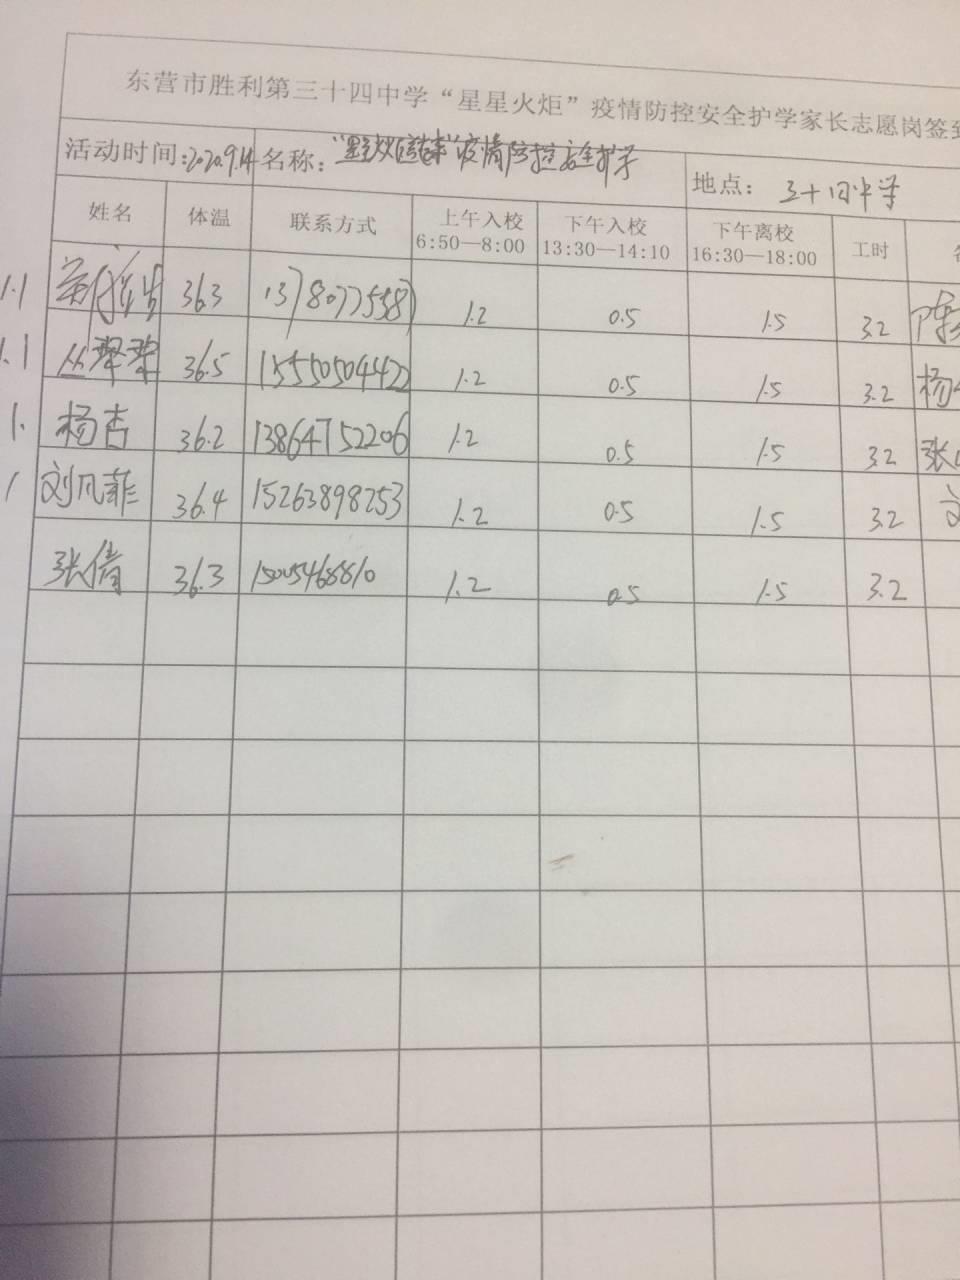 东营市胜利第三十四中学“星星火炬”疫情防控安全护学家长志愿岗签到
活动时间:2020.9.14 名称: 疫情防控安全护学 地点: 三十四中学
姓名 体温 联系方式 上午入校 6:50—8:00 下午入校 13:30—14:10 下午离校 16:30—18:00 工时
1.1 36.3 13780775587 1.2 0.5 1.5 3.2 陈
1.1 丛翠翠 36.5 15550504422 1.2 0.5 1.5 3.2 杨
1. 杨杏 36.2 13864752206 1.2 0.5 1.5 3.2 张
1 刘凡菲 36.4 15263898253 1.2 0.5 1.5 3.2
张倩 36.3 15005468810 1.2 0.5 1.5 3.2